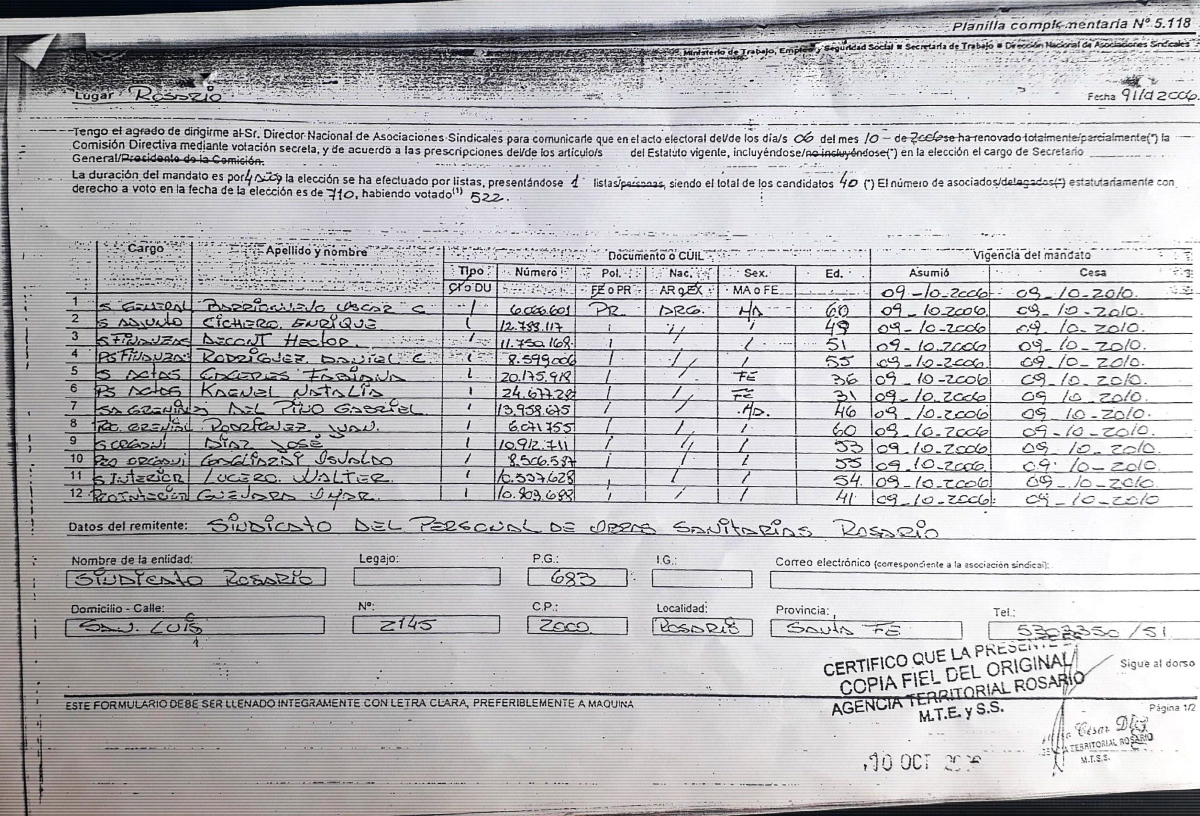 Planilla complementaria Nº 5.118
Ministerio de Trabajo, Empleo y Seguridad Social ■ Secretaría de Trabajo ■ Dirección Nacional de Asociaciones Sindicales
Lugar Rosario Fecha 9/10/2006
Tengo el agrado de dirigirme al Sr. Director Nacional de Asociaciones Sindicales para comunicarle que en el acto electoral del/de los día/s 06 del mes 10 – de 2006 se ha renovado totalmente/parcialmente(*) la
Comisión Directiva mediante votación secreta, y de acuerdo a las prescripciones del/de los artículo/s del Estatuto vigente, incluyéndose/no incluyéndose(*) en la elección el cargo de Secretario
General/Presidente de la Comisión.
La duración del mandato es por 4 la elección se ha efectuado por listas, presentándose 1 listas/personas, siendo el total de los candidatos 40 (*) El número de asociados/delegados(*) estatutariamente con
derecho a voto en la fecha de la elección es de 710, habiendo votado(1) 522.
Cargo Apellido y nombre Documento o CUIL Vigencia del mandato
Tipo Número Pol. Nac. Sex. Ed. Asumió Cesa
CI o DU FE o PR AR o EX MA o FE 09-10-2006 09-10-2010.
1 S GENERAL BARRIONUEVO OSCAR C / 6.026.601 PR ARG. MA 60 09-10-2006 09-10-2010.
2 S ADJUNTO CICHERO, ENRIQUE / 12.788.117 / / / 49 09-10-2006 09-10-2010.
3 S FINANZAS DECONT HECTOR. / 11.750.168 / / / 51 09-10-2006 09-10-2010.
4 PS FINANZAS RODRIGUEZ DANIEL C / 8.599.006 / / / 55 09-10-2006 09-10-2010.
5 S ACTAS CACERES FABIANA / 20.175.918 / / FE 36 09-10-2006 09-10-2010.
6 PS ACTAS KAENEL NATALIA / 24.677.28 / / FE 31 09-10-2006 09-10-2010.
7 SA GREMIAL DEL PINO GABRIEL / 13.958.675 / / MA. 46 09-10-2006 09-10-2010.
8 PRO. GREMIAL RODRIGUEZ JUAN. / 6.071.755 / / / 60 09-10-2006 09-10-2010.
9 S ORGANI DIAZ JOSÉ / 10.912.711 / / / 53 09-10-2006 09-10-2010.
10 PRO ORGANI GAGLIARDI OSVALDO / 8.506.587 / / / 55 09-10-2006 09-10-2010.
11 S INTERIOR LUCERO. WALTER. / 10.557.628 / / / 54 09-10-2006 09-10-2010.
12 PRO INTERIOR GUEVARA OMAR. / 10.809.688 / / / 41 09-10-2006 09-10-2010
Datos del remitente: SINDICATO DEL PERSONAL DE OBRAS SANITARIAS ROSARIO
Nombre de la entidad: Legajo: P.G.: I.G.: Correo electrónico (correspondiente a la asociación sindical):
SINDICATO ROSARIO 683
Domicilio - Calle: Nº: C.P.: Localidad: Provincia: Tel.:
SAN. LUIS 2145 2000 ROSARIO SANTA FE 5302350/51
CERTIFICO QUE LA PRESENTE
COPIA FIEL DEL ORIGINAL
AGENCIA TERRITORIAL ROSARIO
M.T.E. y S.S.
Sigue al dorso
ESTE FORMULARIO DEBE SER LLENADO INTEGRAMENTE CON LETRA CLARA, PREFERIBLEMENTE A MAQUINA
Página 1/2
César Díaz
AGENCIA TERRITORIAL ROSARIO
M.T.S.S.
10 OCT 2006